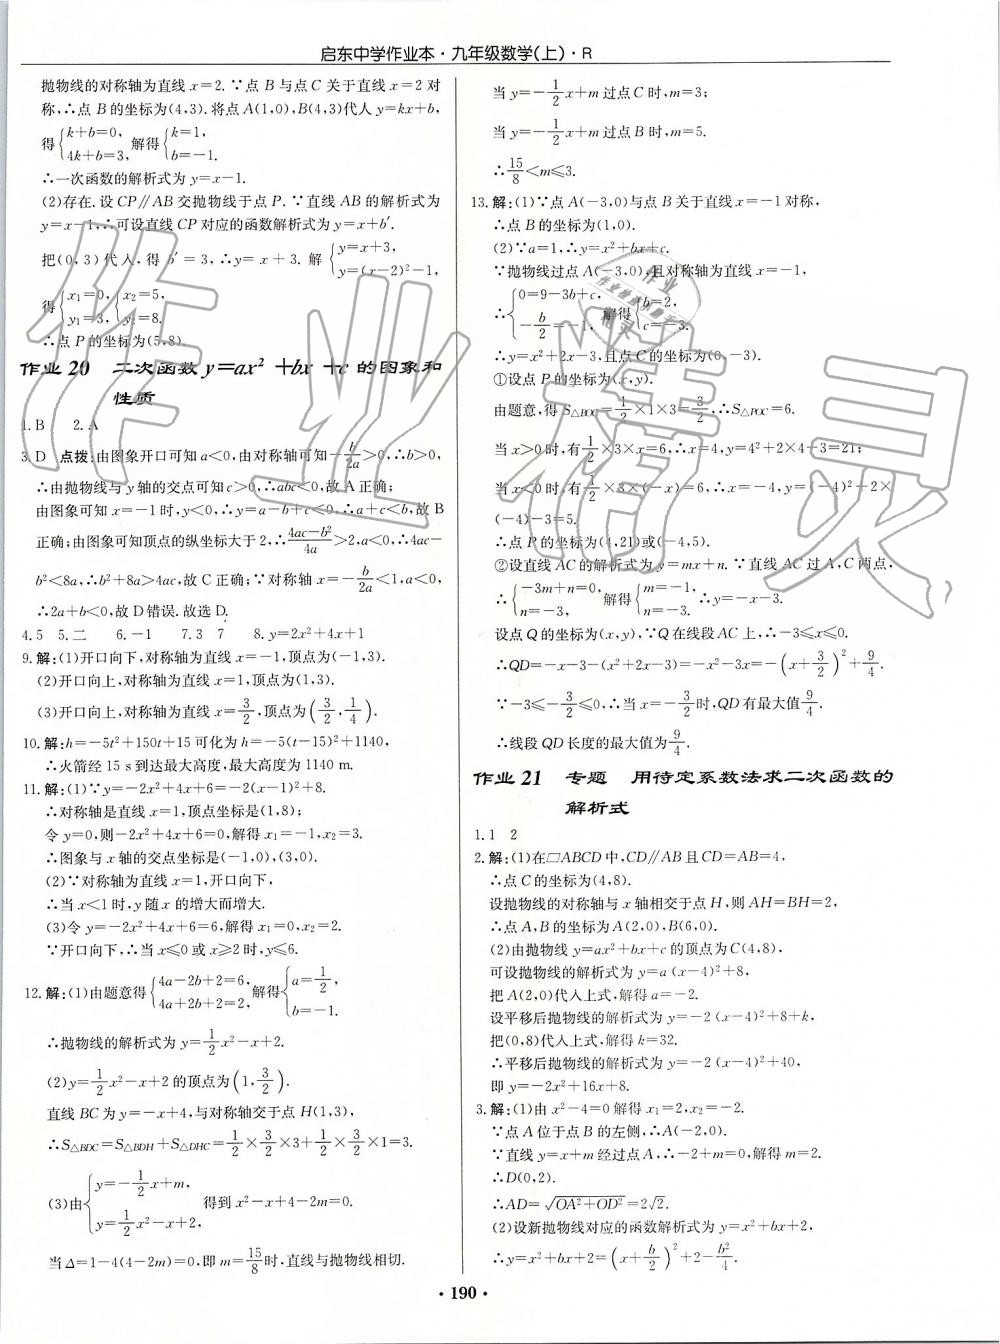 启东中学作业本·九年级数学(上)·R
抛物线的对称轴为直线 x=2.∵点 B 与点 C 关于直线 x=2 对
称,∴点 B 的坐标为(4,3).将点 A(1,0),B(4,3)代入 y=kx+b,
得{k+b=0, 4k+b=3, 解得{k=1, b=-1.
∴一次函数的解析式为 y=x-1.
(2)存在.设 CP∥AB 交抛物线于点 P.∵直线 AB 的解析式为
y=x-1,∴可设直线 CP 对应的函数解析式为 y=x+b′.
把(0,3)代入,得 b′=3,∴y=x+3.解{y=x+3, y=(x-2)²-1,
得{x₁=0, y₁=3, {x₂=5, y₂=8.
∴点 P 的坐标为(5,8).
作业 20 二次函数 y=ax²+bx+c 的图象和
性质
1.B 2.A
3.D 点拨:由图象开口可知 a<0,由对称轴可知-b/2a>0,∴b>0,
∴由抛物线与 y 轴的交点可知 c>0,∴abc<0,故 A 正确;
由图象可知 x=-1 时,y<0,∴y=a-b+c<0,∴a+c<b,故 B
正确;由图象可知顶点的纵坐标大于 2,∴(4ac-b²)/4a>2,a<0,∴4ac-
b²<8a,∴b²+8a>4ac,故 C 正确;∵对称轴 x=-b/2a<1,a<0,
∴2a+b<0,故 D 错误.故选 D.
4.5 5.二 6.-1 7.3 7 8.y=2x²+4x+1
9.解:(1)开口向下,对称轴为直线 x=-1,顶点为(-1,3).
(2)开口向上,对称轴为直线 x=1,顶点为(1,3).
(3)开口向上,对称轴为直线 x=3/2,顶点为(3/2,1/4).
10.解:h=-5t²+150t+15 可化为 h=-5(t-15)²+1140,
∴火箭经 15 s 到达最大高度,最大高度为 1140 m.
11.解:(1)∵y=-2x²+4x+6=-2(x-1)²+8.
∴对称轴是直线 x=1,顶点坐标是(1,8);
令 y=0,则-2x²+4x+6=0,解得 x₁=-1,x₂=3.
∴图象与 x 轴的交点坐标是(-1,0),(3,0).
(2)∵对称轴为直线 x=1,开口向下,
∴当 x<1 时,y 随 x 的增大而增大.
(3)令 y=-2x²+4x+6=6,解得 x₁=0,x₂=2.
∵开口向下,∴当 x≤0 或 x≥2 时,y≤6.
12.解:(1)由题意得{4a-2b+2=6, 4a+2b+2=2,解得{a=1/2, b=-1.
∴抛物线的解析式为 y=1/2x²-x+2.
(2)y=1/2x²-x+2 的顶点为(1,3/2).
直线 BC 为 y=-x+4,与对称轴交于点 H(1,3),
∴S△BDC=S△BDH+S△DHC=1/2×3/2×3+1/2×3/2×1=3.
(3)由{y=-1/2x+m, y=1/2x²-x+2, 得到 x²-x+4-2m=0.
当 Δ=1-4(4-2m)=0,即 m=15/8时,直线与抛物线相切.
当 y=-1/2x+m 过点 C 时,m=3;
当 y=-1/2x+m 过点 B 时,m=5.
∴15/8<m≤3.
13.解:(1)∵点 A(-3,0)与点 B 关于直线 x=-1 对称,
∴点 B 的坐标为(1,0).
(2)∵a=1,∴y=x²+bx+c.
∵抛物线过点 A(-3,0),且对称轴为直线 x=-1,
∴{0=9-3b+c, -b/2=-1, 解得{b=2, c=-3.
∴y=x²+2x-3,且点 C 的坐标为(0,-3).
①设点 P 的坐标为(x,y).
由题意,得 S△BOC=1/2×1×3=3/2,∴S△POC=6.
当 x>0 时,有1/2×3×x=6,∴x=4,y=4²+2×4-3=21;
当 x<0 时,有1/2×3×(-x)=6,∴x=-4,y=(-4)²+2×
(-4)-3=5.
∴点 P 的坐标为(4,21)或(-4,5).
②设直线 AC 的解析式为 y=mx+n.∵直线 AC 过 A,C 两点,
∴{-3m+n=0, n=-3, 解得{m=-1, n=-3. ∴y=-x-3.
设点 Q 的坐标为(x,y),∵Q 在线段 AC 上,∴-3≤x≤0.
∴QD=-x-3-(x²+2x-3)=-x²-3x=-(x+3/2)²+9/4.
∵-3≤-3/2≤0,∴当 x=-3/2时,QD 有最大值9/4.
∴线段 QD 长度的最大值为9/4.
作业 21 专题 用待定系数法求二次函数的
解析式
1.1 2
2.解:(1)在□ABCD 中,CD∥AB 且 CD=AB=4,
∴点 C 的坐标为(4,8).
设抛物线的对称轴与 x 轴相交于点 H,则 AH=BH=2,
∴点 A,B 的坐标为 A(2,0),B(6,0).
(2)由抛物线 y=ax²+bx+c 的顶点为 C(4,8),
可设抛物线的解析式为 y=a(x-4)²+8,
把 A(2,0)代入上式,解得 a=-2.
设平移后抛物线的解析式为 y=-2(x-4)²+8+k,
把(0,8)代入上式,解得 k=32.
∴平移后抛物线的解析式为 y=-2(x-4)²+40,
即 y=-2x²+16x+8.
3.解:(1)由 x²-4=0 解得 x₁=2,x₂=-2.
∵点 A 位于点 B 的左侧,∴A(-2,0).
∵直线 y=x+m 经过点 A,∴-2+m=0.解得 m=2.
∴D(0,2).
∴AD=√(OA²+OD²)=2√2.
(2)设新抛物线对应的函数解析式为 y=x²+bx+2,
∴y=x²+bx+2=(x+b/2)²+2-b²/4.
·190·
作业精灵